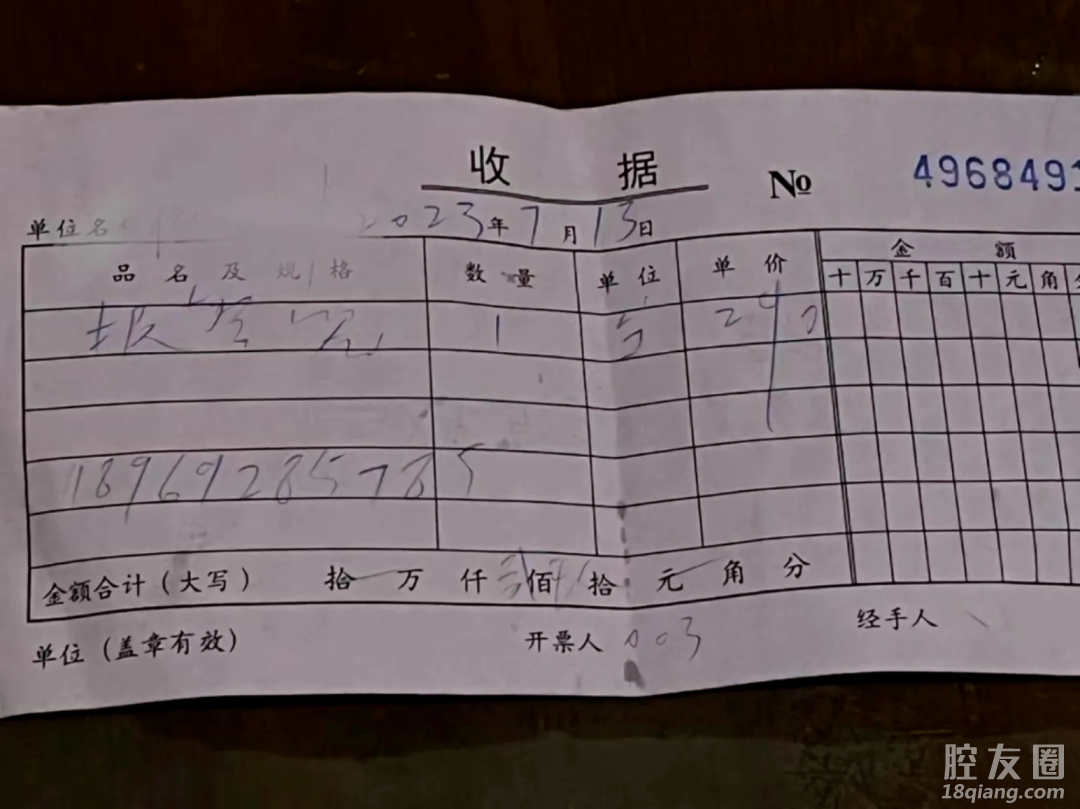 收 据 № 4968491
单位名 2023年7月13日
品名及规格 数量 单位 单价 金额
十万千百十元角分
1 290
18969285785
金额合计（大写） 拾 万 仟 贰佰 拾 元 角 分
单位（盖章有效） 开票人 003 经手人
腔友圈
18qiang.com